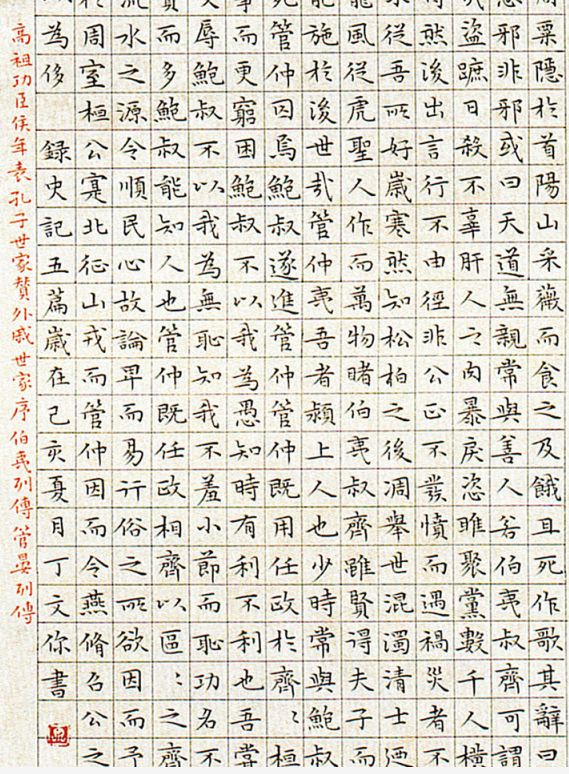 周粟隱於首陽山采薇而食之及餓且死作歌其辭曰
邪非邪或曰天道無親常與善人若伯夷叔齊可謂
盜蹠日殺不辜肝人之肉暴戾恣睢聚黨數千人橫
然後出言行不由徑非公正不發憤而遇禍災者不
從吾所好歲寒然知松柏之後凋舉世混濁清士迺
龍風從虎聖人作而萬物睹伯夷叔齊雖賢得夫子而
能施於後世哉管仲夷吾者潁上人也少時常與鮑叔
死管仲囚焉鮑叔遂進管仲管仲既用任政於齊〻桓
事而更窮困鮑叔不以我為愚知時有利不利也吾嘗
辱鮑叔不以我為無恥知我不羞小節而恥功名不
而多鮑叔能知人也管仲既任政相齊以區〻之齊
流水之源令順民心故論卑而易行俗之所欲因而予
於周室桓公寔北征山戎而管仲因而令燕脩召公之
為侈 錄史記五篇歲在己亥夏月丁文你書
高祖功臣侯年表孔子世家贊外戚世家序伯夷列傳管晏列傳